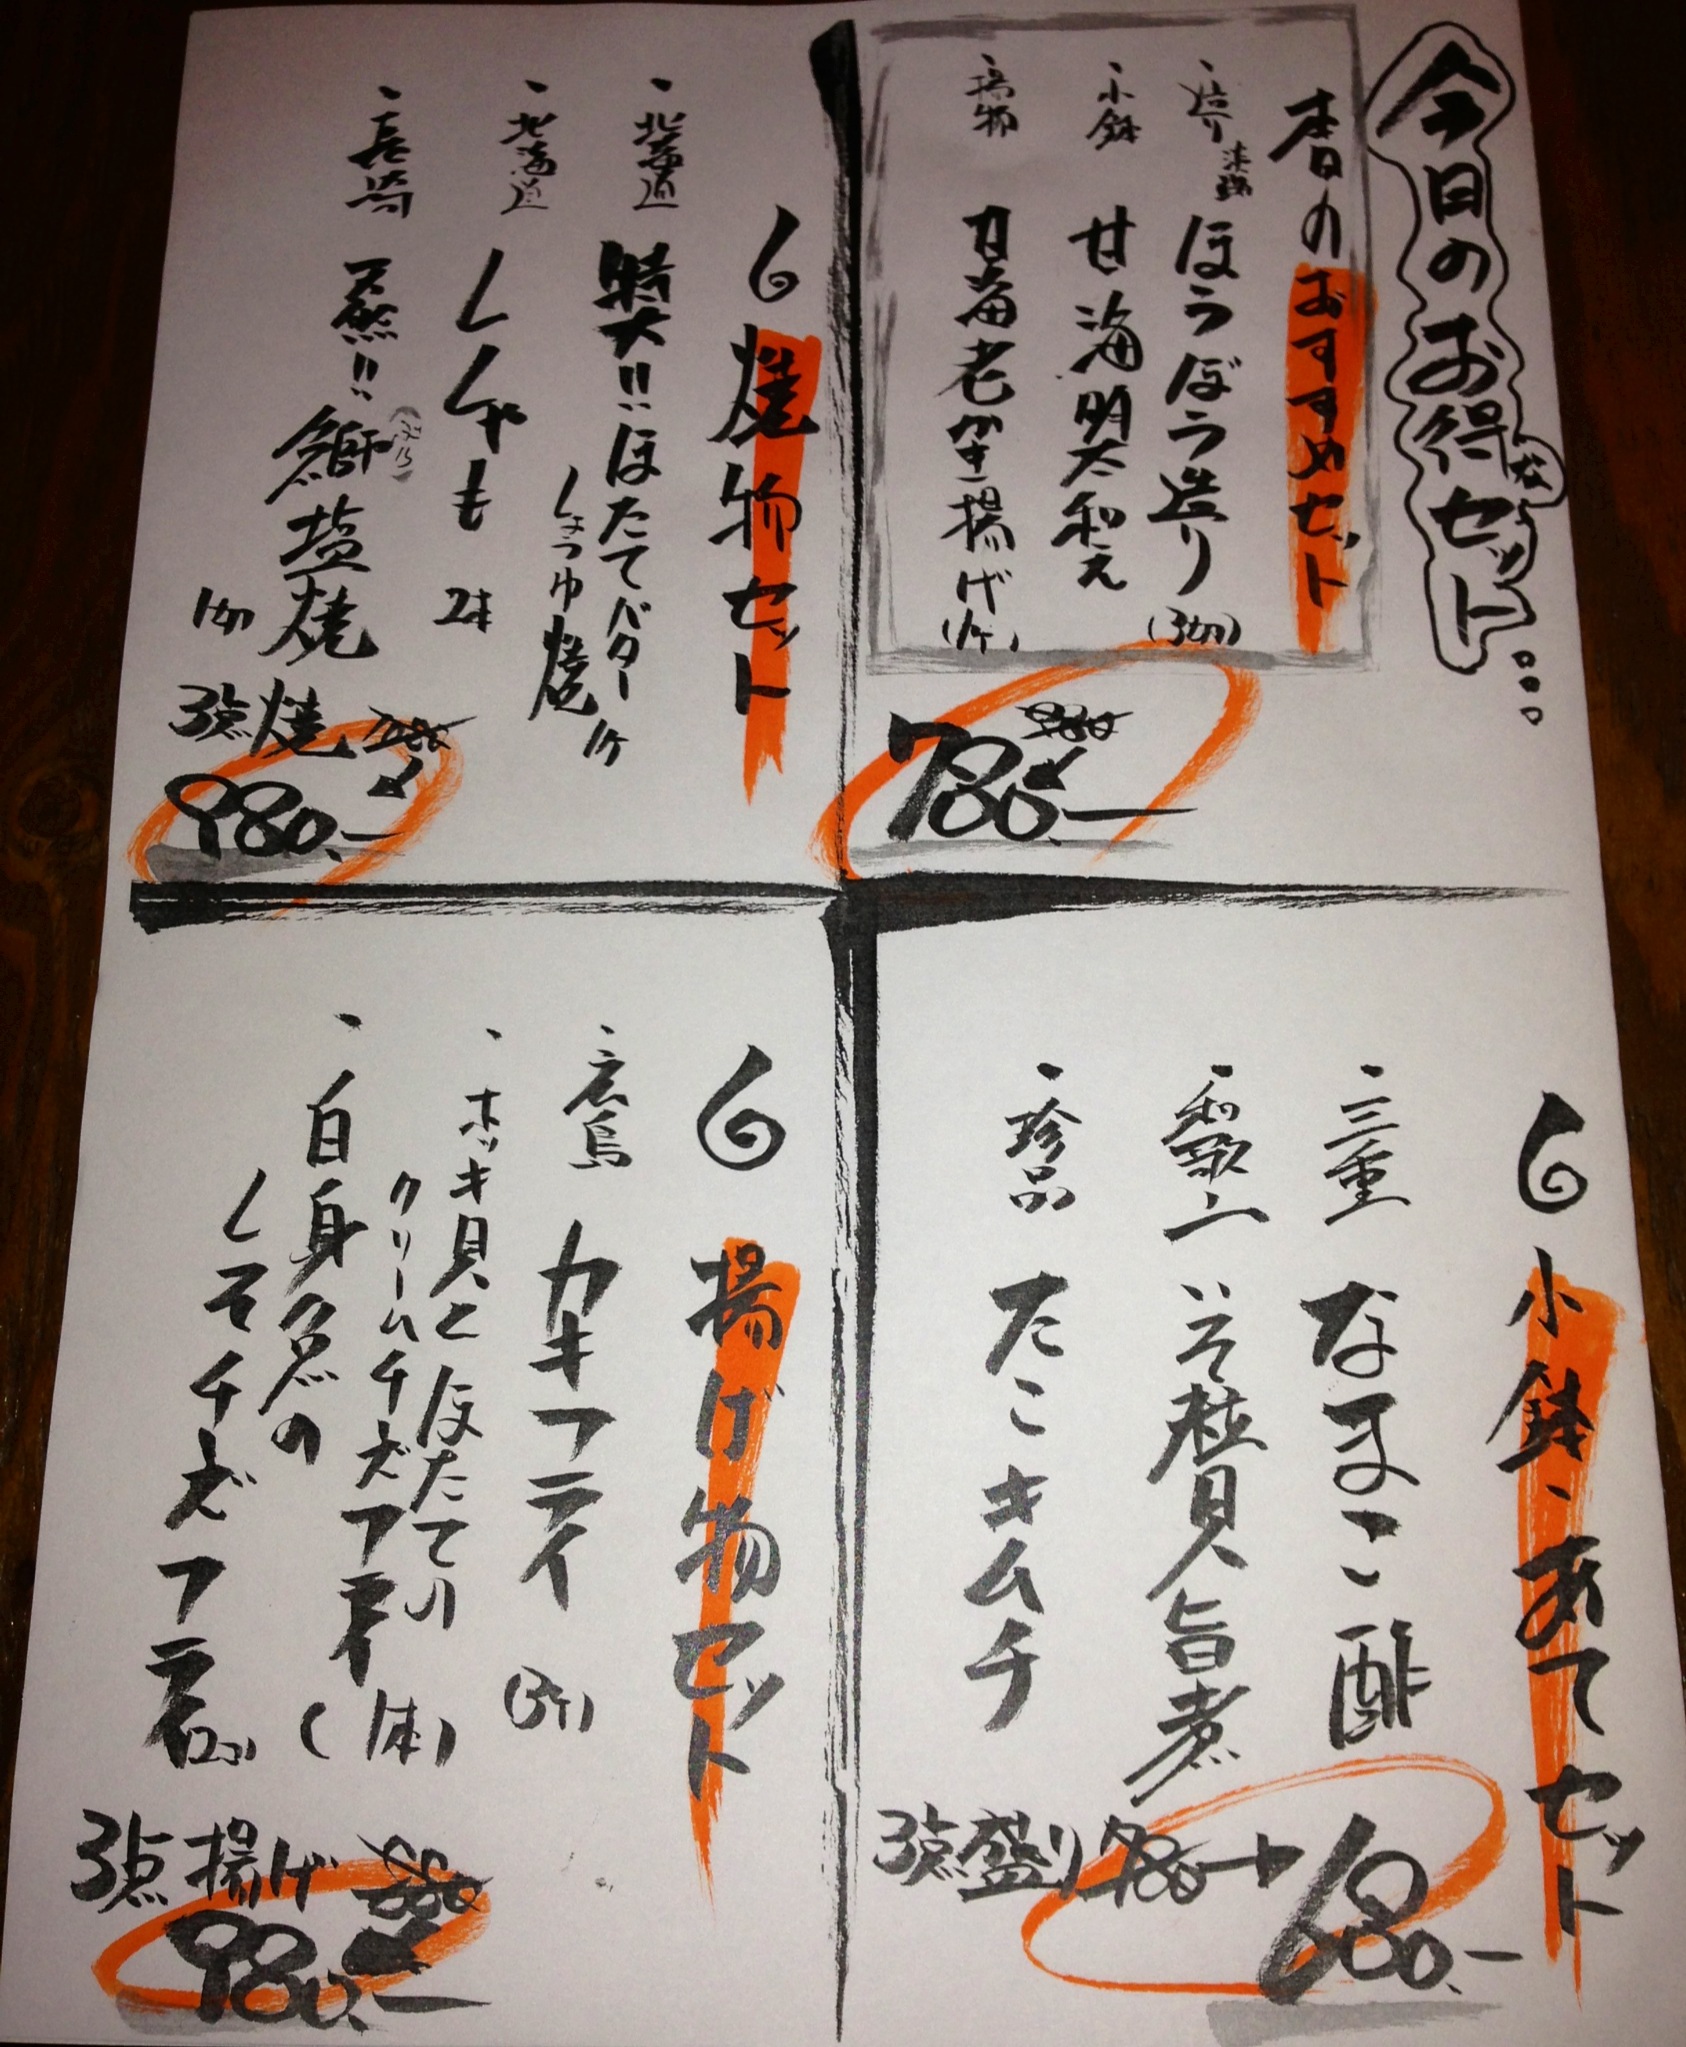 今日のお得なセット...
本日のおすすめセット
・造り 淡路 ほうぼう造り (3切)
・小鉢 甘海明太和え
・揚物 甘海老かき揚げ (1ヶ)
980
780.-
焼物セット
・北海道 特大!!ほたてバター
しょうゆ焼 1ヶ
・北海道 ししゃも 2本
・長崎 天然!!鰤(ぶり)塩焼 1切
3点焼
980.-
小鉢、あてセット
・三重 なまこ酢
・和歌山 いそ粒貝旨煮
・珍品 たこキムチ
3点盛り 780 → 680.-
揚げ物セット
・広島 カキフライ (3ケ)
・ホッキ貝とほたての
クリームチーズフライ (1本)
・白身魚の
しそチーズフライ
3点揚げ
980.-